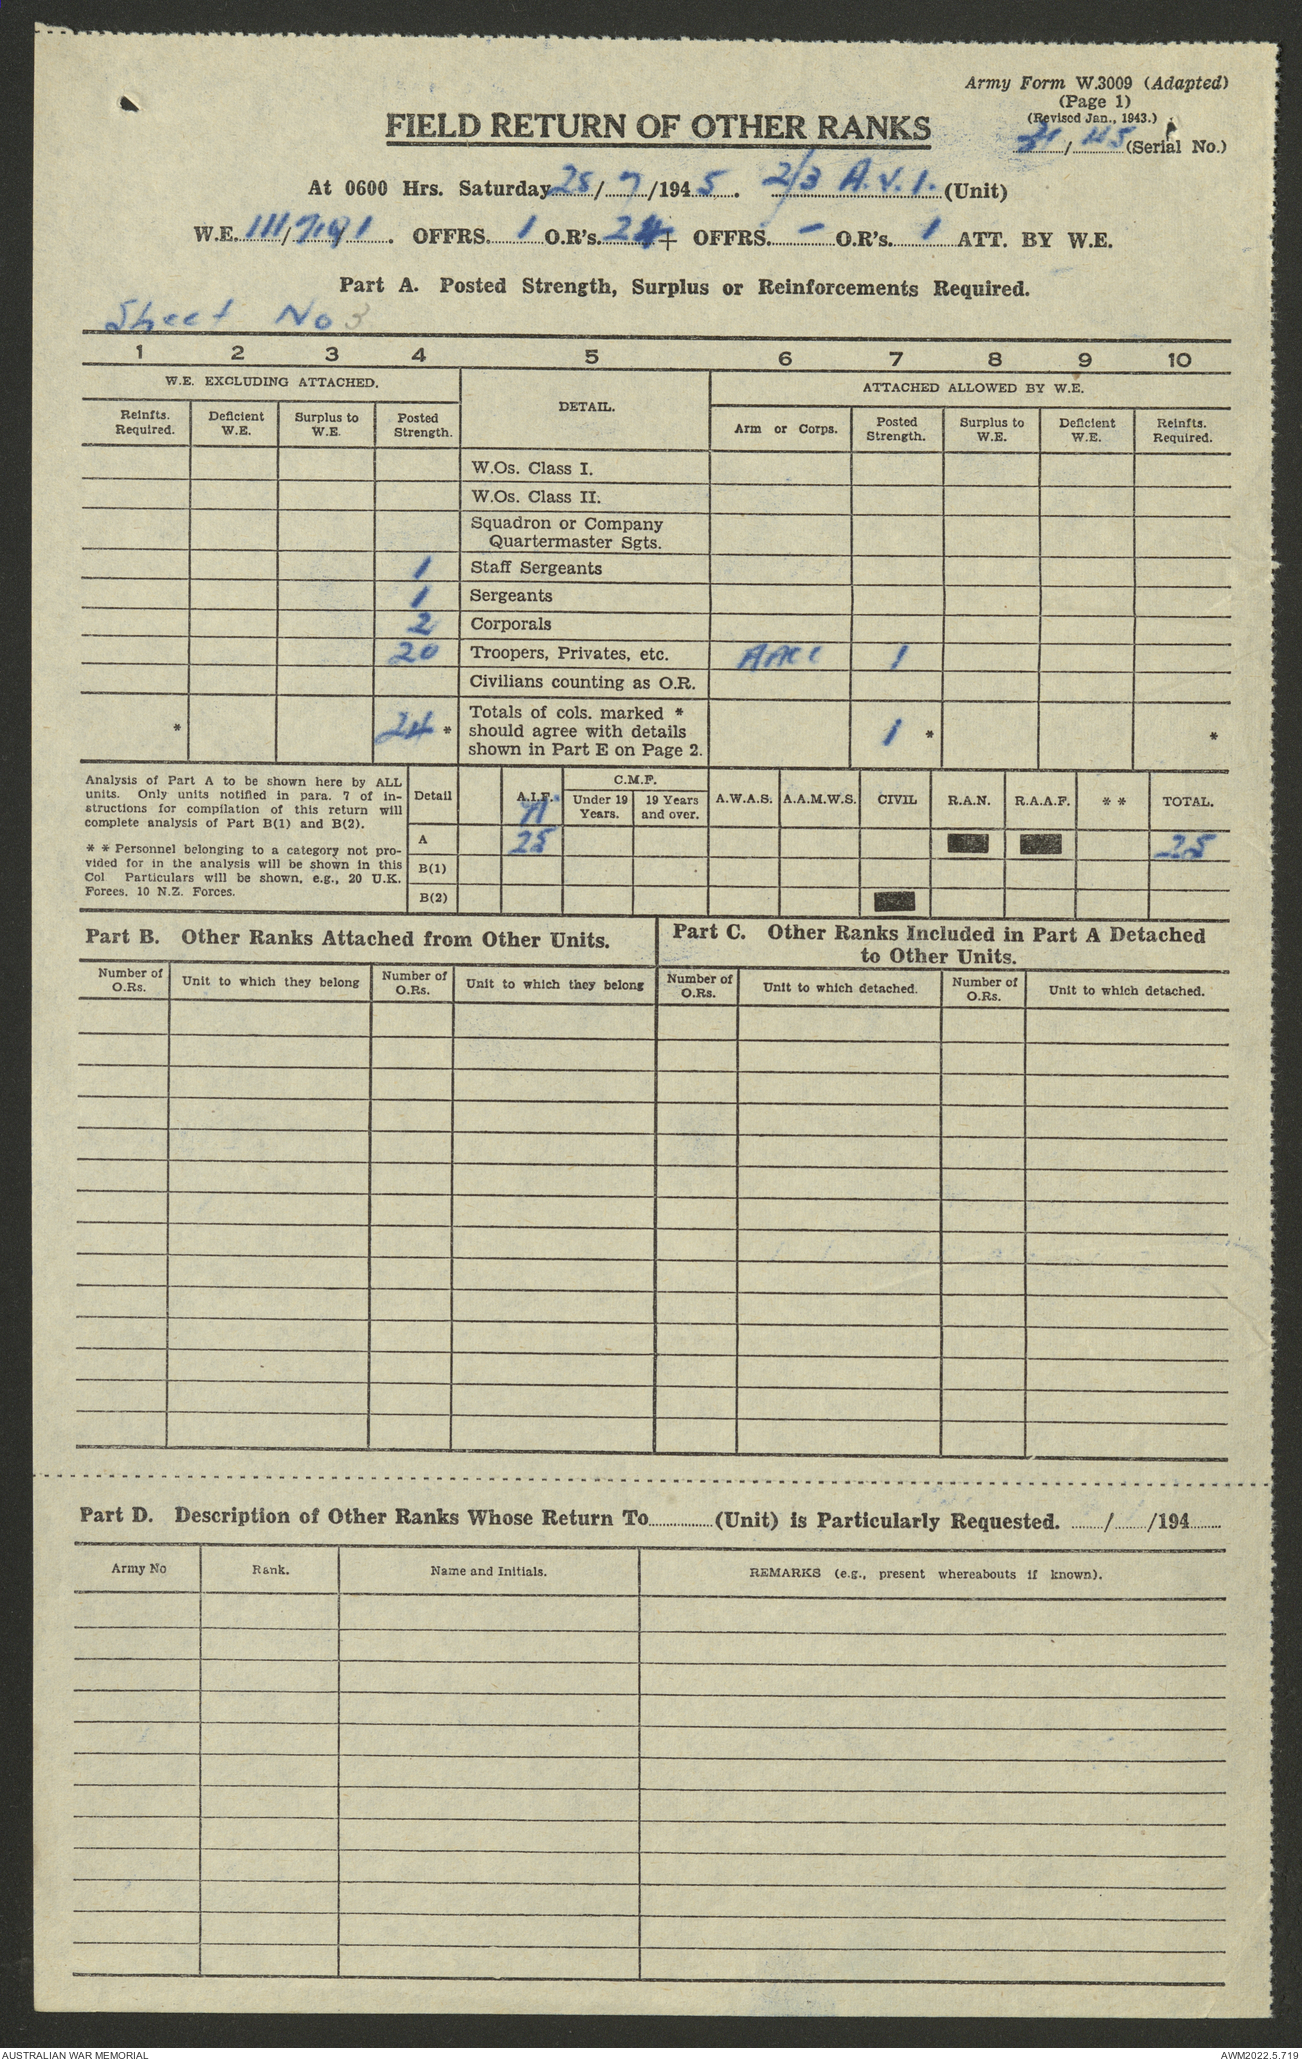 Army Form W.3009 (Adapted)
(Page 1)
(Revised Jan., 1943.)
FIELD RETURN OF OTHER RANKS
/45 (Serial No.)
At 0600 Hrs. Saturday 28/7/1945. 2/3 A.V.I. (Unit)
W.E. III/ . OFFRS. 1 O.R's. 24 + OFFRS. - O.R's. 1 ATT. BY W.E.
Part A. Posted Strength, Surplus or Reinforcements Required.
Sheet No 3
1 2 3 4 5 6 7 8 9 10
W.E. EXCLUDING ATTACHED. DETAIL. ATTACHED ALLOWED BY W.E.
Reinfts. Required. Deficient W.E. Surplus to W.E. Posted Strength. Arm or Corps. Posted Strength. Surplus to W.E. Deficient W.E. Reinfts. Required.
W.Os. Class I.
W.Os. Class II.
Squadron or Company
Quartermaster Sgts.
1 Staff Sergeants
1 Sergeants
2 Corporals
20 Troopers, Privates, etc. AACC 1
Civilians counting as O.R.
* 24 * Totals of cols. marked * should agree with details shown in Part E on Page 2. 1 * *
Analysis of Part A to be shown here by ALL
units. Only units notified in para. 7 of in-
structions for compilation of this return will
complete analysis of Part B(1) and B(2).
* * Personnel belonging to a category not pro-
vided for in the analysis will be shown in this
Col Particulars will be shown, e.g., 20 U.K.
Forces. 10 N.Z. Forces.
Detail A.I.F. C.M.F. Under 19 Years. 19 Years and over. A.W.A.S. A.A.M.W.S. CIVIL R.A.N. R.A.A.F. * * TOTAL.
A 25 25
B(1)
B(2)
Part B. Other Ranks Attached from Other Units.
Part C. Other Ranks Included in Part A Detached
to Other Units.
Number of O.Rs. Unit to which they belong Number of O.Rs. Unit to which they belong Number of O.Rs. Unit to which detached. Number of O.Rs. Unit to which detached.
Part D. Description of Other Ranks Whose Return To (Unit) is Particularly Requested. / /194
Army No Rank. Name and Initials. REMARKS (e.g., present whereabouts if known).
AUSTRALIAN WAR MEMORIAL AWM2022.5.719